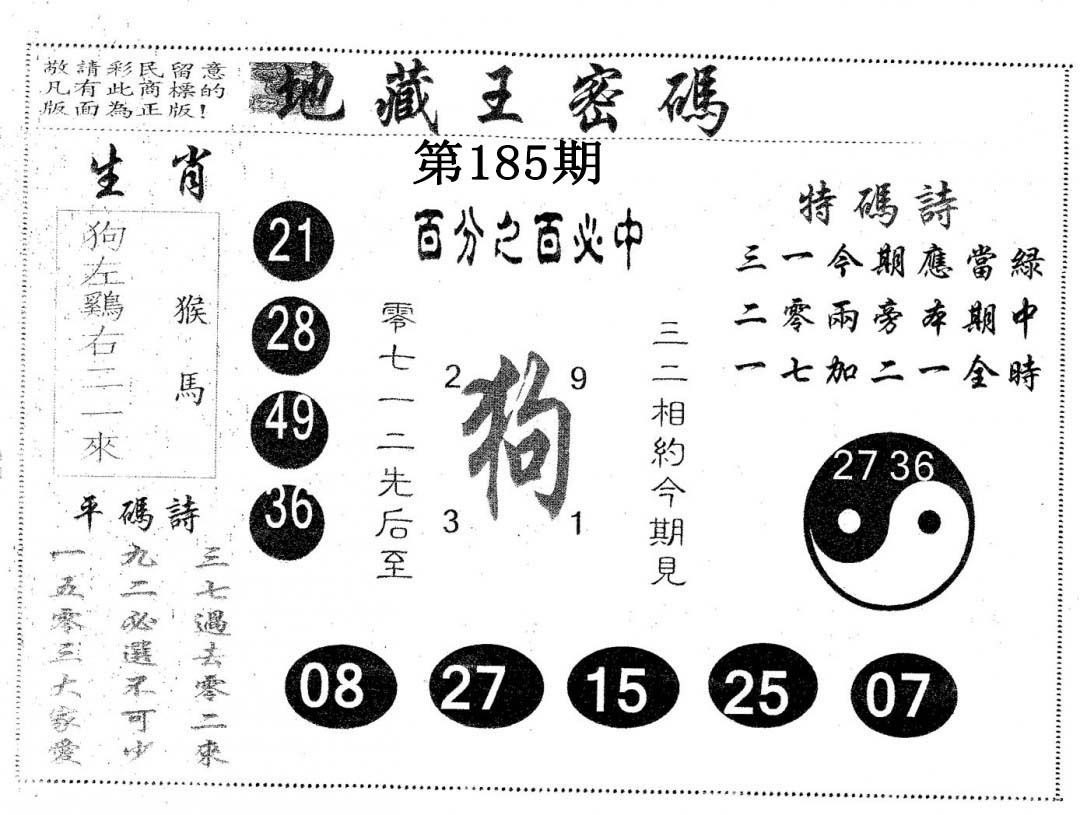 敬請彩民留意
凡有此商標的
版面為正版！
地藏王密碼
第185期
生肖
狗左鷄右二一來
猴馬
平碼詩
三七過去零二來
九二必選不可少
一五零三大家愛
21
28
49
36
百分之百必中
零七一二先后至
2
9
狗
3
1
三二相約今期見
特碼詩
三一今期應當綠
二零兩旁本期中
一七加二一全時
27 36
08
27
15
25
07